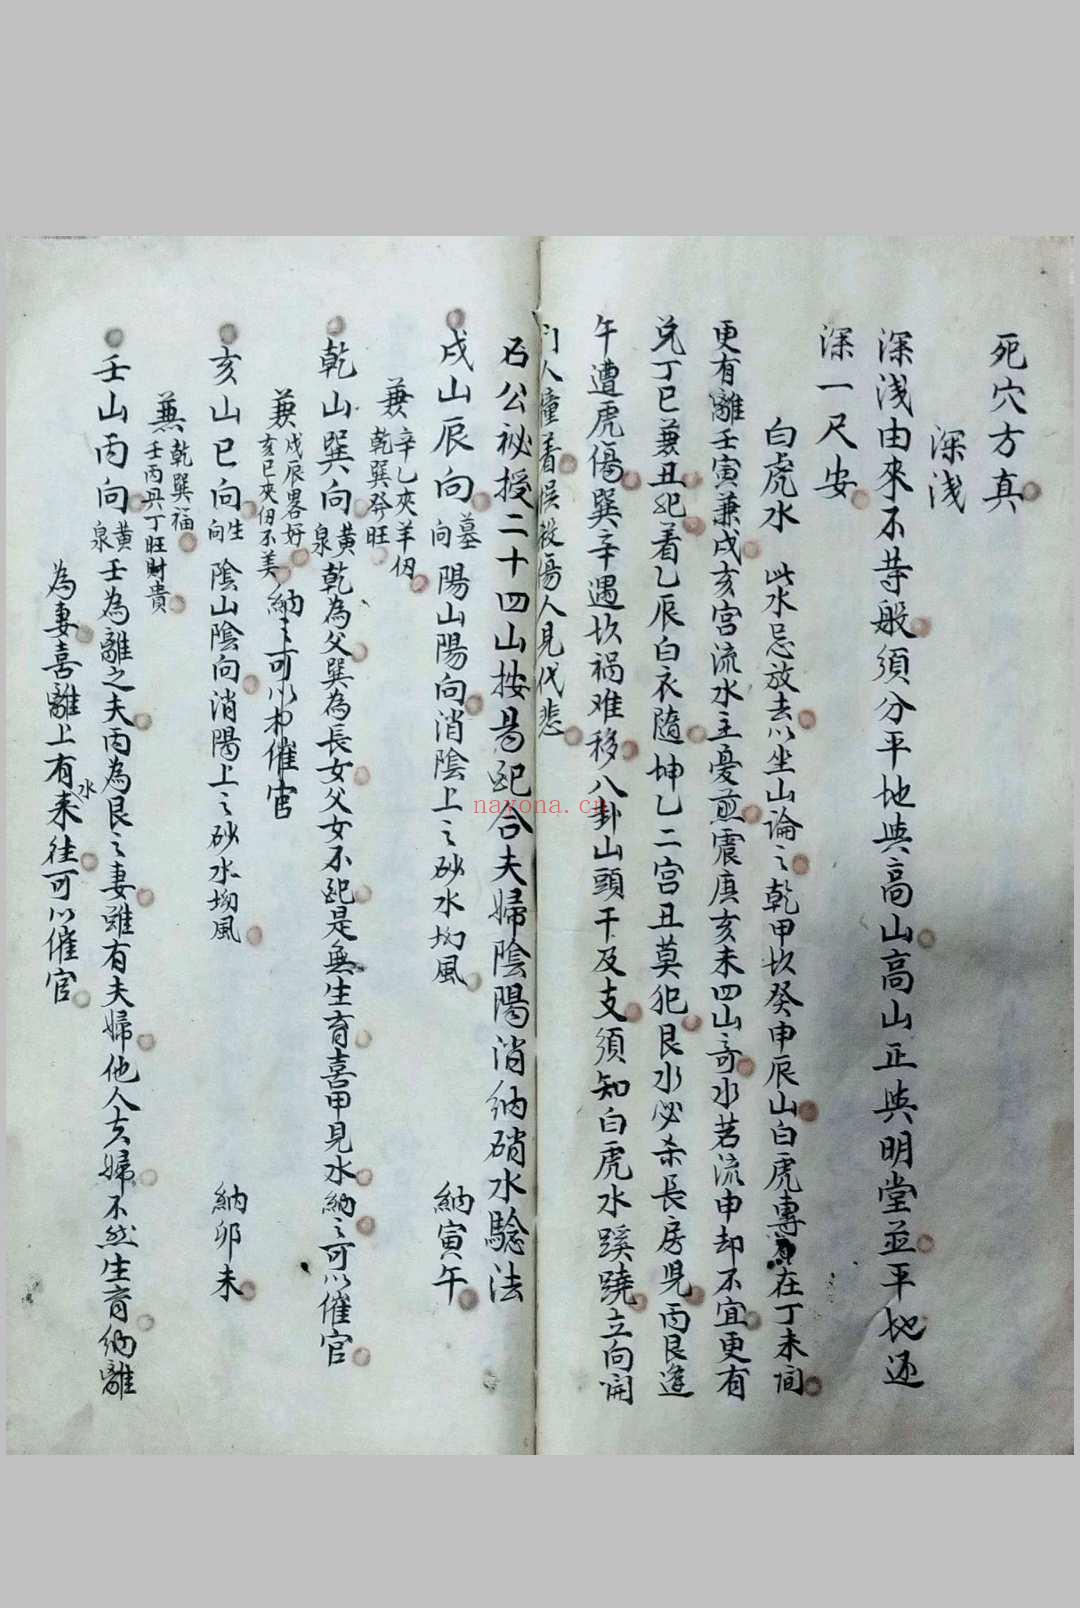 死穴方真
深淺
深淺由來不昔般須分平地與高山高山正與明堂並平地还
深一尺安
白虎水 此水忌放去以坐山論之乾甲坎癸申辰山白虎專在丁未间
更有離壬寅兼戌亥宫流水主憂煎震庚亥未四山奇水若流申却不宜更有
兑丁巳兼丑犯着乙辰白衣隨坤乙二宫丑莫犯艮水必杀長房児丙艮逢
午遭虎傷巽辛遇坎祸难移八卦山頭干及支須知白虎水蹊蹺立向開
门人童看误殺傷人見代悲
呂公祕授二十四山按易配合夫婦陰陽消納硝水騐法
戌山辰向 墓向 陽山陽向消陰上之砂水坳風 納寅午
兼 辛乙夾羊仞 乾巽發旺
乾山巽向 黄泉 乾為父巽為長女父女不配是無生育喜甲見水納之可以催官
兼 戌辰畧好 亥巳夾仞不美 納之可以催官
亥山巳向 生向 陰山陰向消陽上之砂水坳風 納卯未
兼 乾巽福 壬丙具丁旺財貴
壬山丙向 黄泉 壬為離之夫丙為艮之妻雖有夫婦他人夫婦不然生育納離
為妻喜離上有水來往可以催官
nayona.cn